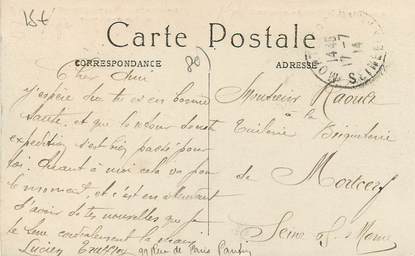 15f
Carte Postale
CORRESPONDANCE
ADRESSE
80
14
Cher Ami
J'espère que tu es en bonne
santé, et que le retour de
expédition s'est bien passé pour
toi. Quant à moi cela va pour
le moment, et c'est en attendant
d'avoir de tes nouvelles que je
te serre cordialement la main
Lucien
99 Rue de Paris Pantin
Monsieur Raoult
à la
Tuilerie Briqueterie
de Mortcerf
Seine et Marne